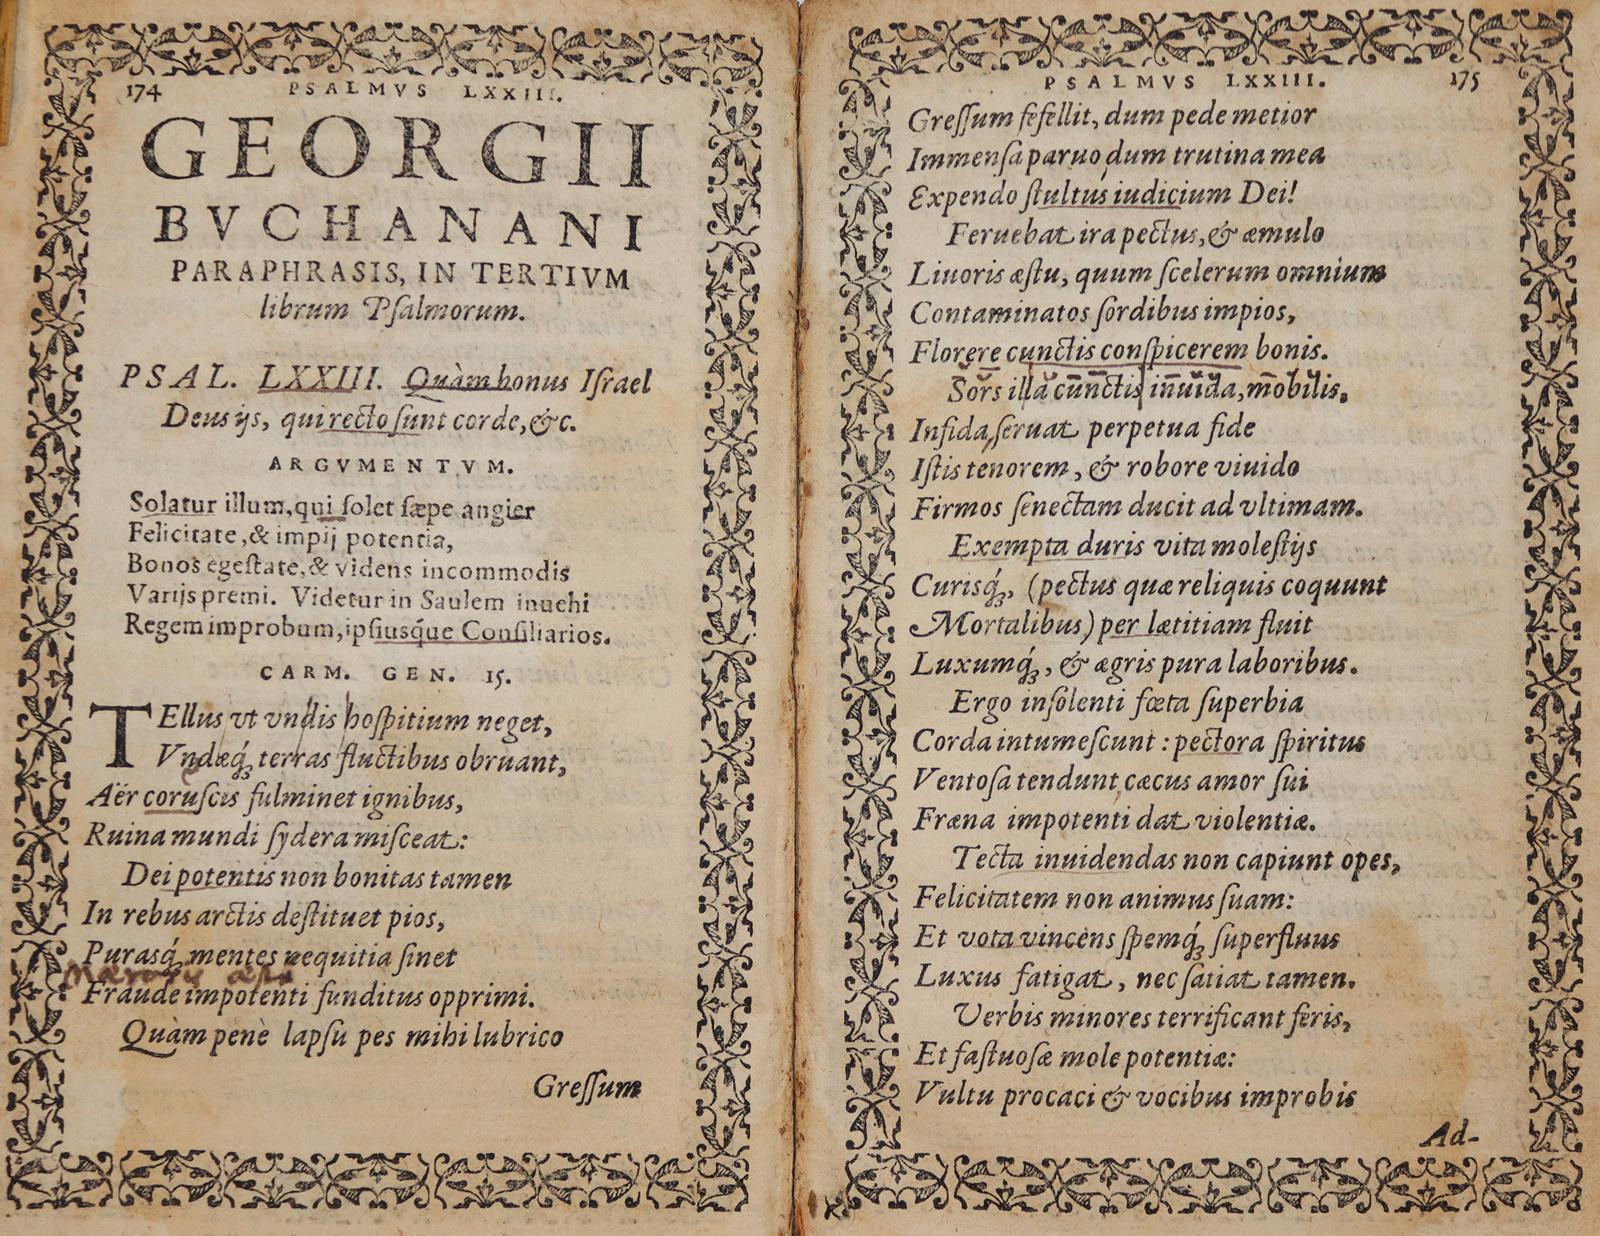 174 PSALMVS LXXIII.
GEORGII
BVCHANANI
PARAPHRASIS, IN TERTIVM
librum Psalmorum.
PSAL. LXXIII. Quàm bonus Iſrael
Deus ijs, qui recto ſunt corde, &c.
ARGVMENTVM.
Solatur illum, qui ſolet ſæpe angier
Felicitate, & impij potentia,
Bonos egeſtate, & videns incommodis
Varijs premi. Videtur in Saulem inuehi
Regem improbum, ipſiusq́ue Conſiliarios.
CARM. GEN. 15.
TEllus vt vndis hoſpitium neget,
Vndæq́; terras fluctibus obruant,
Aër coruſcis fulminet ignibus,
Ruina mundi ſydera miſceat:
Dei potentis non bonitas tamen
In rebus arctis deſtituet pios,
Purasq́; mentes nequitia ſinet
Fraude impotenti funditus opprimi.
Quàm penè lapſu pes mihi lubrico
Greſſum
PSALMVS LXXIII. 175
Greſſum fefellit, dum pede metior
Immenſa paruo, dum trutina mea
Expendo ſtultus iudicium Dei!
Feruebat ira pectus, & æmulo
Liuoris æſtu, quum ſcelerum omnium
Contaminatos ſordibus impios,
Florere cunctis conſpicerem bonis.
Sors illa cunctis inuida, mobilis,
Infida, ſeruat perpetua fide
Iſtis tenorem, & robore viuido
Firmos ſenectam ducit ad vltimam.
Exempta duris vita moleſtijs
Curisq́;, (pectus quæ reliquis coquunt
Mortalibus) per lætitiam fluit
Luxumq́;, & ægris pura laboribus.
Ergo inſolenti fœta ſuperbia
Corda intumeſcunt: pectora ſpiritus
Ventoſa tendunt, cæcus amor ſui
Fræna impotenti dat violentiæ.
Tecta inuidendas non capiunt opes,
Felicitatem non animus ſuam:
Et vota vincens ſpemq́; ſuperfluus
Luxus fatigat, nec ſatiat tamen.
Verbis minores terrificant feris,
Et faſtuoſæ mole potentiæ:
Vultu procaci & vocibus improbis
Ad-